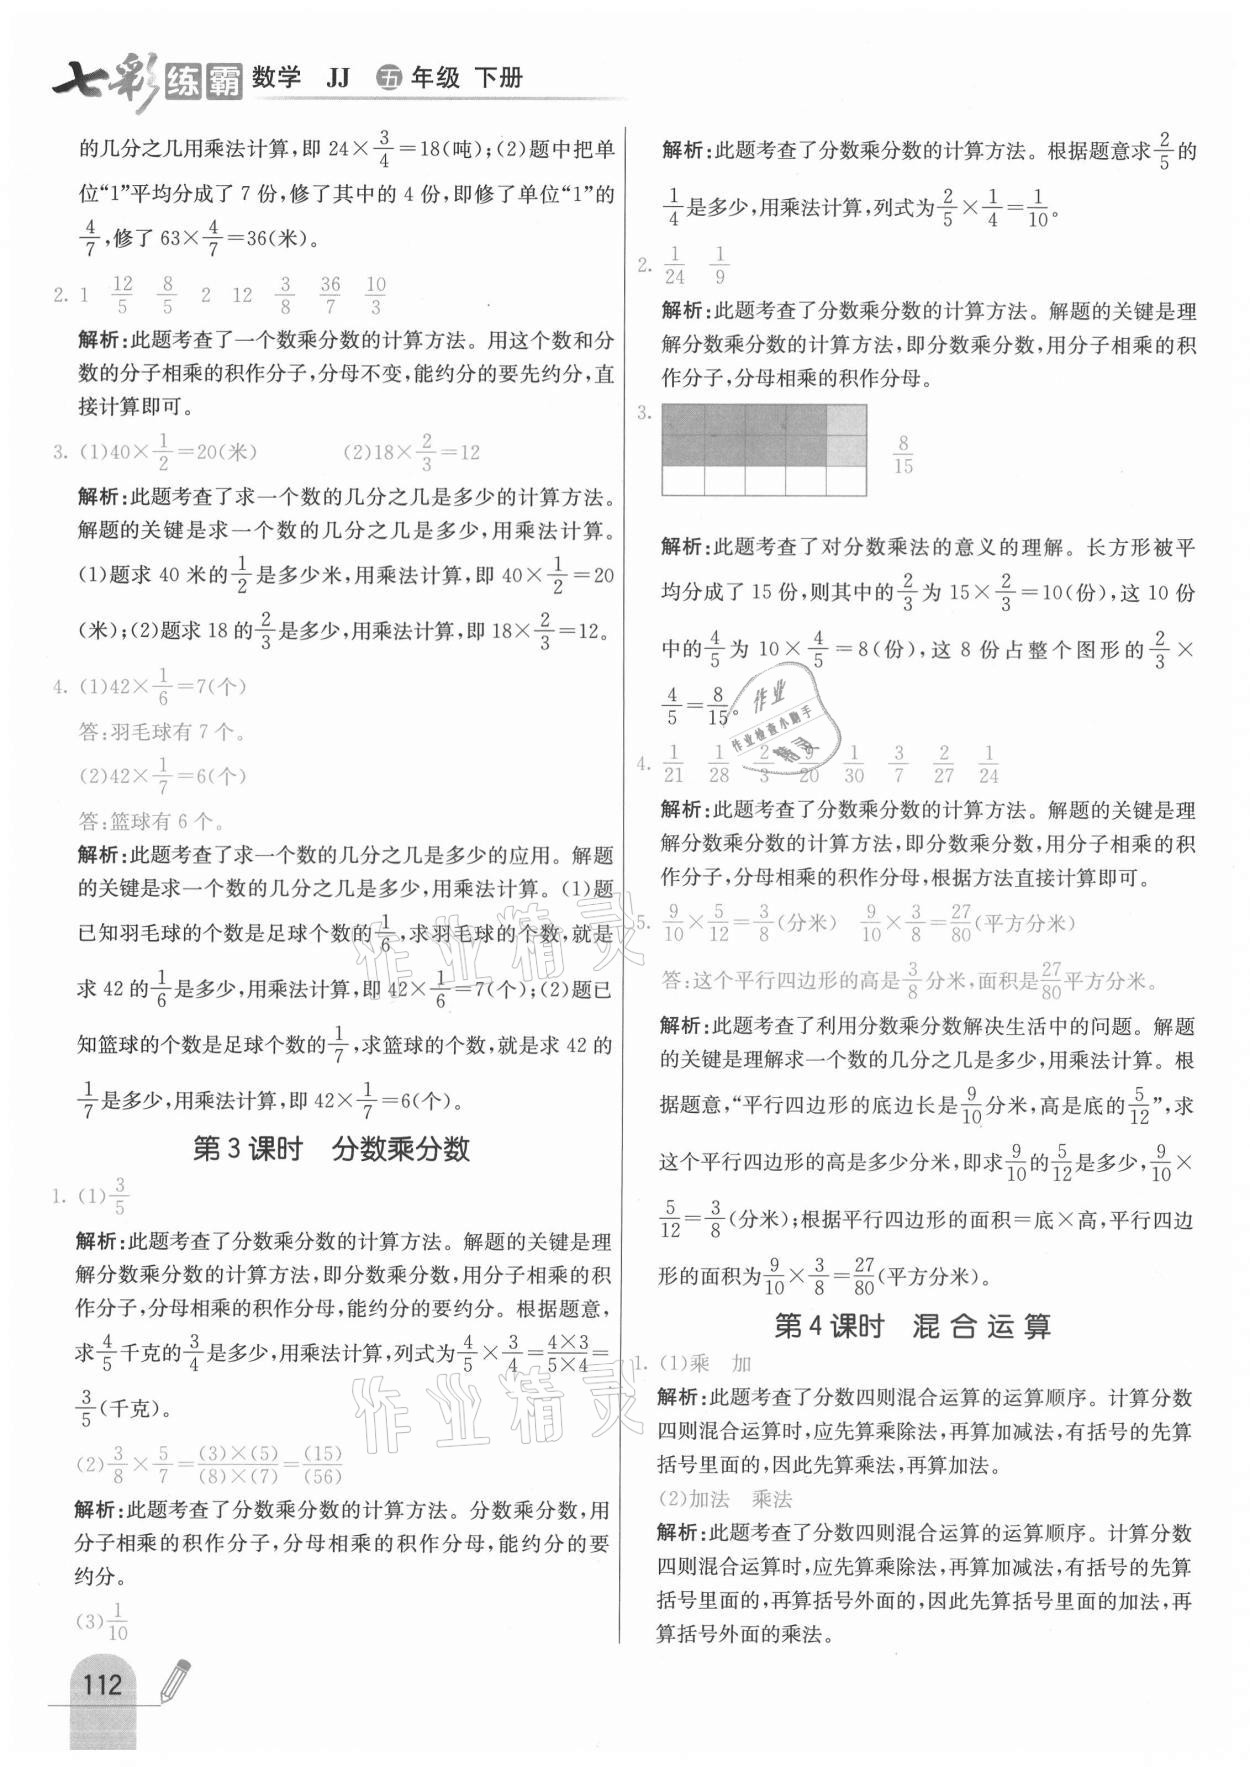 七彩练霸 数学 JJ 五年级 下册
的几分之几用乘法计算,即 24×3/4=18(吨);(2)题中把单
位“1”平均分成了 7 份,修了其中的 4 份,即修了单位“1”的
4/7,修了 63×4/7=36(米)。
2. 1 12/5 8/5 2 12 3/8 36/7 10/3
解析:此题考查了一个数乘分数的计算方法。用这个数和分
数的分子相乘的积作分子,分母不变,能约分的要先约分,直
接计算即可。
3. (1)40×1/2=20(米) (2)18×2/3=12
解析:此题考查了求一个数的几分之几是多少的计算方法。
解题的关键是求一个数的几分之几是多少,用乘法计算。
(1)题求 40 米的1/2是多少米,用乘法计算,即 40×1/2=20
(米);(2)题求 18 的2/3是多少,用乘法计算,即 18×2/3=12。
4. (1)42×1/6=7(个)
答:羽毛球有 7 个。
(2)42×1/7=6(个)
答:篮球有 6 个。
解析:此题考查了求一个数的几分之几是多少的应用。解题
的关键是求一个数的几分之几是多少,用乘法计算。(1)题
已知羽毛球的个数是足球个数的1/6,求羽毛球的个数,就是
求 42 的1/6是多少,用乘法计算,即 42×1/6=7(个);(2)题已
知篮球的个数是足球个数的1/7,求篮球的个数,就是求 42 的
1/7是多少,用乘法计算,即 42×1/7=6(个)。
第 3 课时 分数乘分数
1. (1)3/5
解析:此题考查了分数乘分数的计算方法。解题的关键是理
解分数乘分数的计算方法,即分数乘分数,用分子相乘的积
作分子,分母相乘的积作分母,能约分的要约分。根据题意,
求4/5千克的3/4是多少,用乘法计算,列式为4/5×3/4=4×3/5×4=
3/5(千克)。
(2)3/8×5/7=(3)×(5)/(8)×(7)=(15)/(56)
解析:此题考查了分数乘分数的计算方法。分数乘分数,用
分子相乘的积作分子,分母相乘的积作分母,能约分的要
约分。
(3)1/10
112
解析:此题考查了分数乘分数的计算方法。根据题意求2/5的
1/4是多少,用乘法计算,列式为2/5×1/4=1/10。
2. 1/24 1/9
解析:此题考查了分数乘分数的计算方法。解题的关键是理
解分数乘分数的计算方法,即分数乘分数,用分子相乘的积
作分子,分母相乘的积作分母。
3. 8/15
解析:此题考查了对分数乘法的意义的理解。长方形被平
均分成了 15 份,则其中的2/3为 15×2/3=10(份),这 10 份
中的4/5为 10×4/5=8(份),这 8 份占整个图形的2/3×
4/5=8/15。
作业
作业检查小助手
精灵
4. 1/21 1/28 2/3 9/20 1/30 3/7 2/27 1/24
解析:此题考查了分数乘分数的计算方法。解题的关键是理
解分数乘分数的计算方法,即分数乘分数,用分子相乘的积
作分子,分母相乘的积作分母,根据方法直接计算即可。
5. 9/10×5/12=3/8(分米) 9/10×3/8=27/80(平方分米)
答:这个平行四边形的高是3/8分米,面积是27/80平方分米。
解析:此题考查了利用分数乘分数解决生活中的问题。解题
的关键是理解求一个数的几分之几是多少,用乘法计算。根
据题意,“平行四边形的底边长是9/10分米,高是底的5/12”,求
这个平行四边形的高是多少分米,即求9/10的5/12是多少,9/10×
5/12=3/8(分米);根据平行四边形的面积=底×高,平行四边
形的面积为9/10×3/8=27/80(平方分米)。
第 4 课时 混合运算
1. (1)乘 加
解析:此题考查了分数四则混合运算的运算顺序。计算分数
四则混合运算时,应先算乘除法,再算加减法,有括号的先算
括号里面的,因此先算乘法,再算加法。
(2)加法 乘法
解析:此题考查了分数四则混合运算的运算顺序。计算分数
四则混合运算时,应先算乘除法,再算加减法,有括号的先算
括号里面的,再算括号外面的,因此先算括号里面的加法,再
算括号外面的乘法。
作业精灵
作业精灵